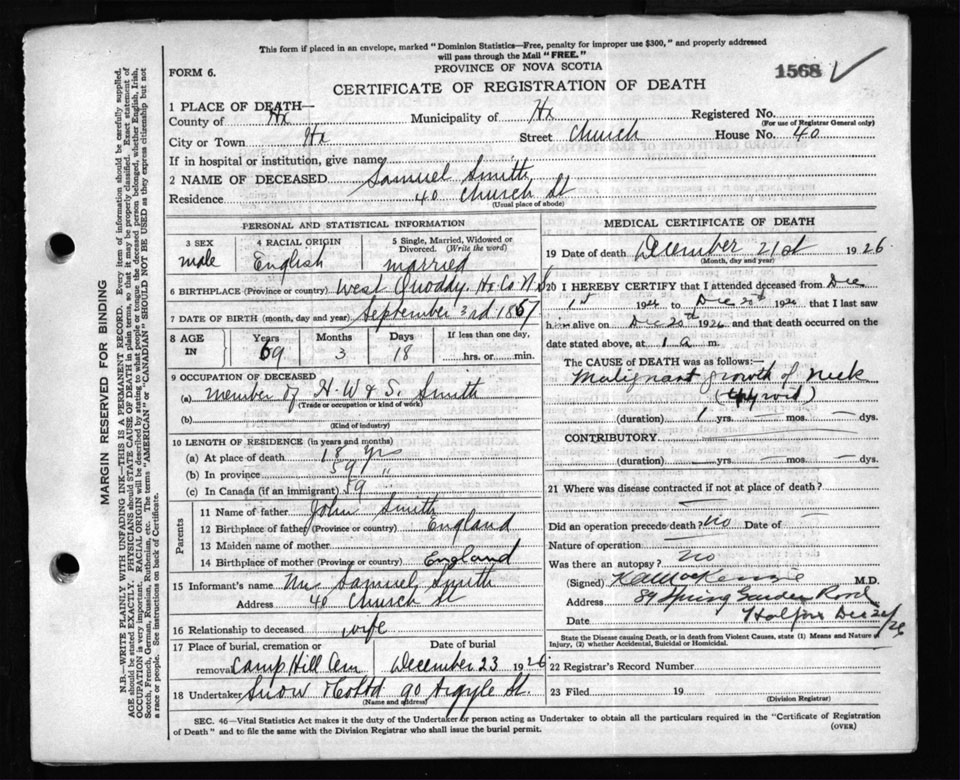 This form if placed in an envelope, marked "Dominion Statistics—Free, penalty for improper use $300," and properly addressed
will pass through the Mail "FREE."
FORM 6.
PROVINCE OF NOVA SCOTIA
1568
CERTIFICATE OF REGISTRATION OF DEATH
1 PLACE OF DEATH—
County of Hx Municipality of Hx Registered No.
(For use of Registrar General only)
City or Town Hx Street Church House No. 40
If in hospital or institution, give name
2 NAME OF DECEASED Samuel Smith
Residence 40 Church St
(Usual place of abode)
PERSONAL AND STATISTICAL INFORMATION
3 SEX male
4 RACIAL ORIGIN English
5 Single, Married, Widowed or
Divorced. (Write the word)
married
6 BIRTHPLACE (Province or country) West Quoddy. Hx Co N.S
7 DATE OF BIRTH (month, day and year) September 3rd 1867
8 AGE
IN
Years 59
Months 3
Days 18
If less than one day,
hrs. or min.
9 OCCUPATION OF DECEASED
(a) member of H. W & S. Smith
(Trade or occupation or kind of work)
(b)
(Kind of industry)
10 LENGTH OF RESIDENCE (in years and months)
(a) At place of death 18 yrs
(b) In province 59 "
(c) In Canada (if an immigrant) 59
Parents
11 Name of father John Smith
12 Birthplace of father (Province or country) England
13 Maiden name of mother
14 Birthplace of mother (Province or country) England
15 Informant's name Mrs Samuel Smith
Address 40 Church St
16 Relationship to deceased wife
17 Place of burial, cremation or
removal Camp Hill Cem
Date of burial
December 23 1926
18 Undertaker Snow 90 Argyle St.
(Name and address)
MEDICAL CERTIFICATE OF DEATH
19 Date of death December 21st 1926
(Month, day and year)
20 I HEREBY CERTIFY that I attended deceased from Dec
1st 1926 to Dec 20th 1926 that I last saw
him alive on Dec 20th 1926 and that death occurred on the
date stated above, at 1 a m.
The CAUSE OF DEATH was as follows:—
Malignant growth of neck
(thyroid)
(duration) 1 yrs. — mos. — dys.
CONTRIBUTORY
(duration) yrs. mos. dys.
21 Where was disease contracted if not at place of death?
Did an operation precede death? no Date of —
Nature of operation —
Was there an autopsy? no
(Signed) K A MacKenzie M.D.
Address 89 Spring Garden Road
Date Halifax Dec 21/26
State the Disease causing Death, or in death from Violent Causes, state (1) Means and Nature of
Injury, (2) whether Accidental, Suicidal or Homicidal.
22 Registrar's Record Number
23 Filed 19
(Division Registrar)
SEC. 46—Vital Statistics Act makes it the duty of the Undertaker or person acting as Undertaker to obtain all the particulars required in the "Certificate of Registration
of Death" and to file the same with the Division Registrar who shall issue the burial permit.
(OVER)
MARGIN RESERVED FOR BINDING
N.B.—WRITE PLAINLY WITH UNFADING INK—THIS IS A PERMANENT RECORD. Every item of information should be carefully supplied.
AGE should be stated EXACTLY. PHYSICIANS should STATE CAUSE OF DEATH in plain terms, so that it may be properly classified. Exact statement of
OCCUPATION is very important. RACIAL ORIGIN will be described by stating to what people or tongue the deceased person belonged, whether English, Irish,
Scotch, French, German, Russian, Ruthenian, etc. The terms "AMERICAN" or "CANADIAN" SHOULD NOT BE USED as they express citizenship but not
a race or people. See instructions on back of Certificate.